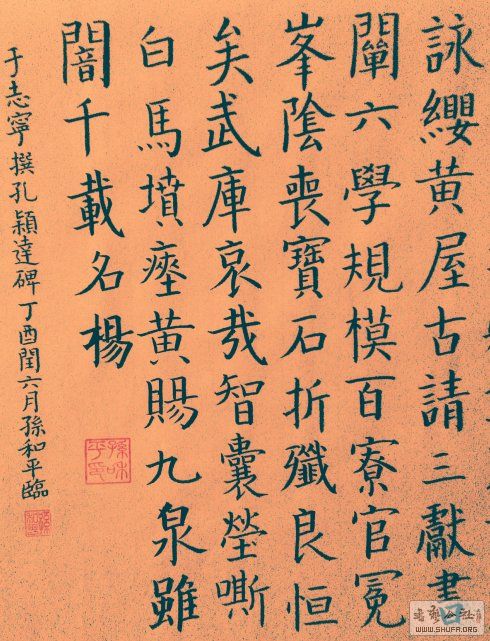 詠纓黄屋古請三獻書
闡六學規模百寮官冕
峯陰喪寶石折殲良恒
矣武庫哀哉智囊塋嘶
白馬墳瘞黄賜九泉雖
闇千載名楊
于志寧撰孔穎達碑丁酉閏六月孫和平臨
WWW.SHUFA.ORG